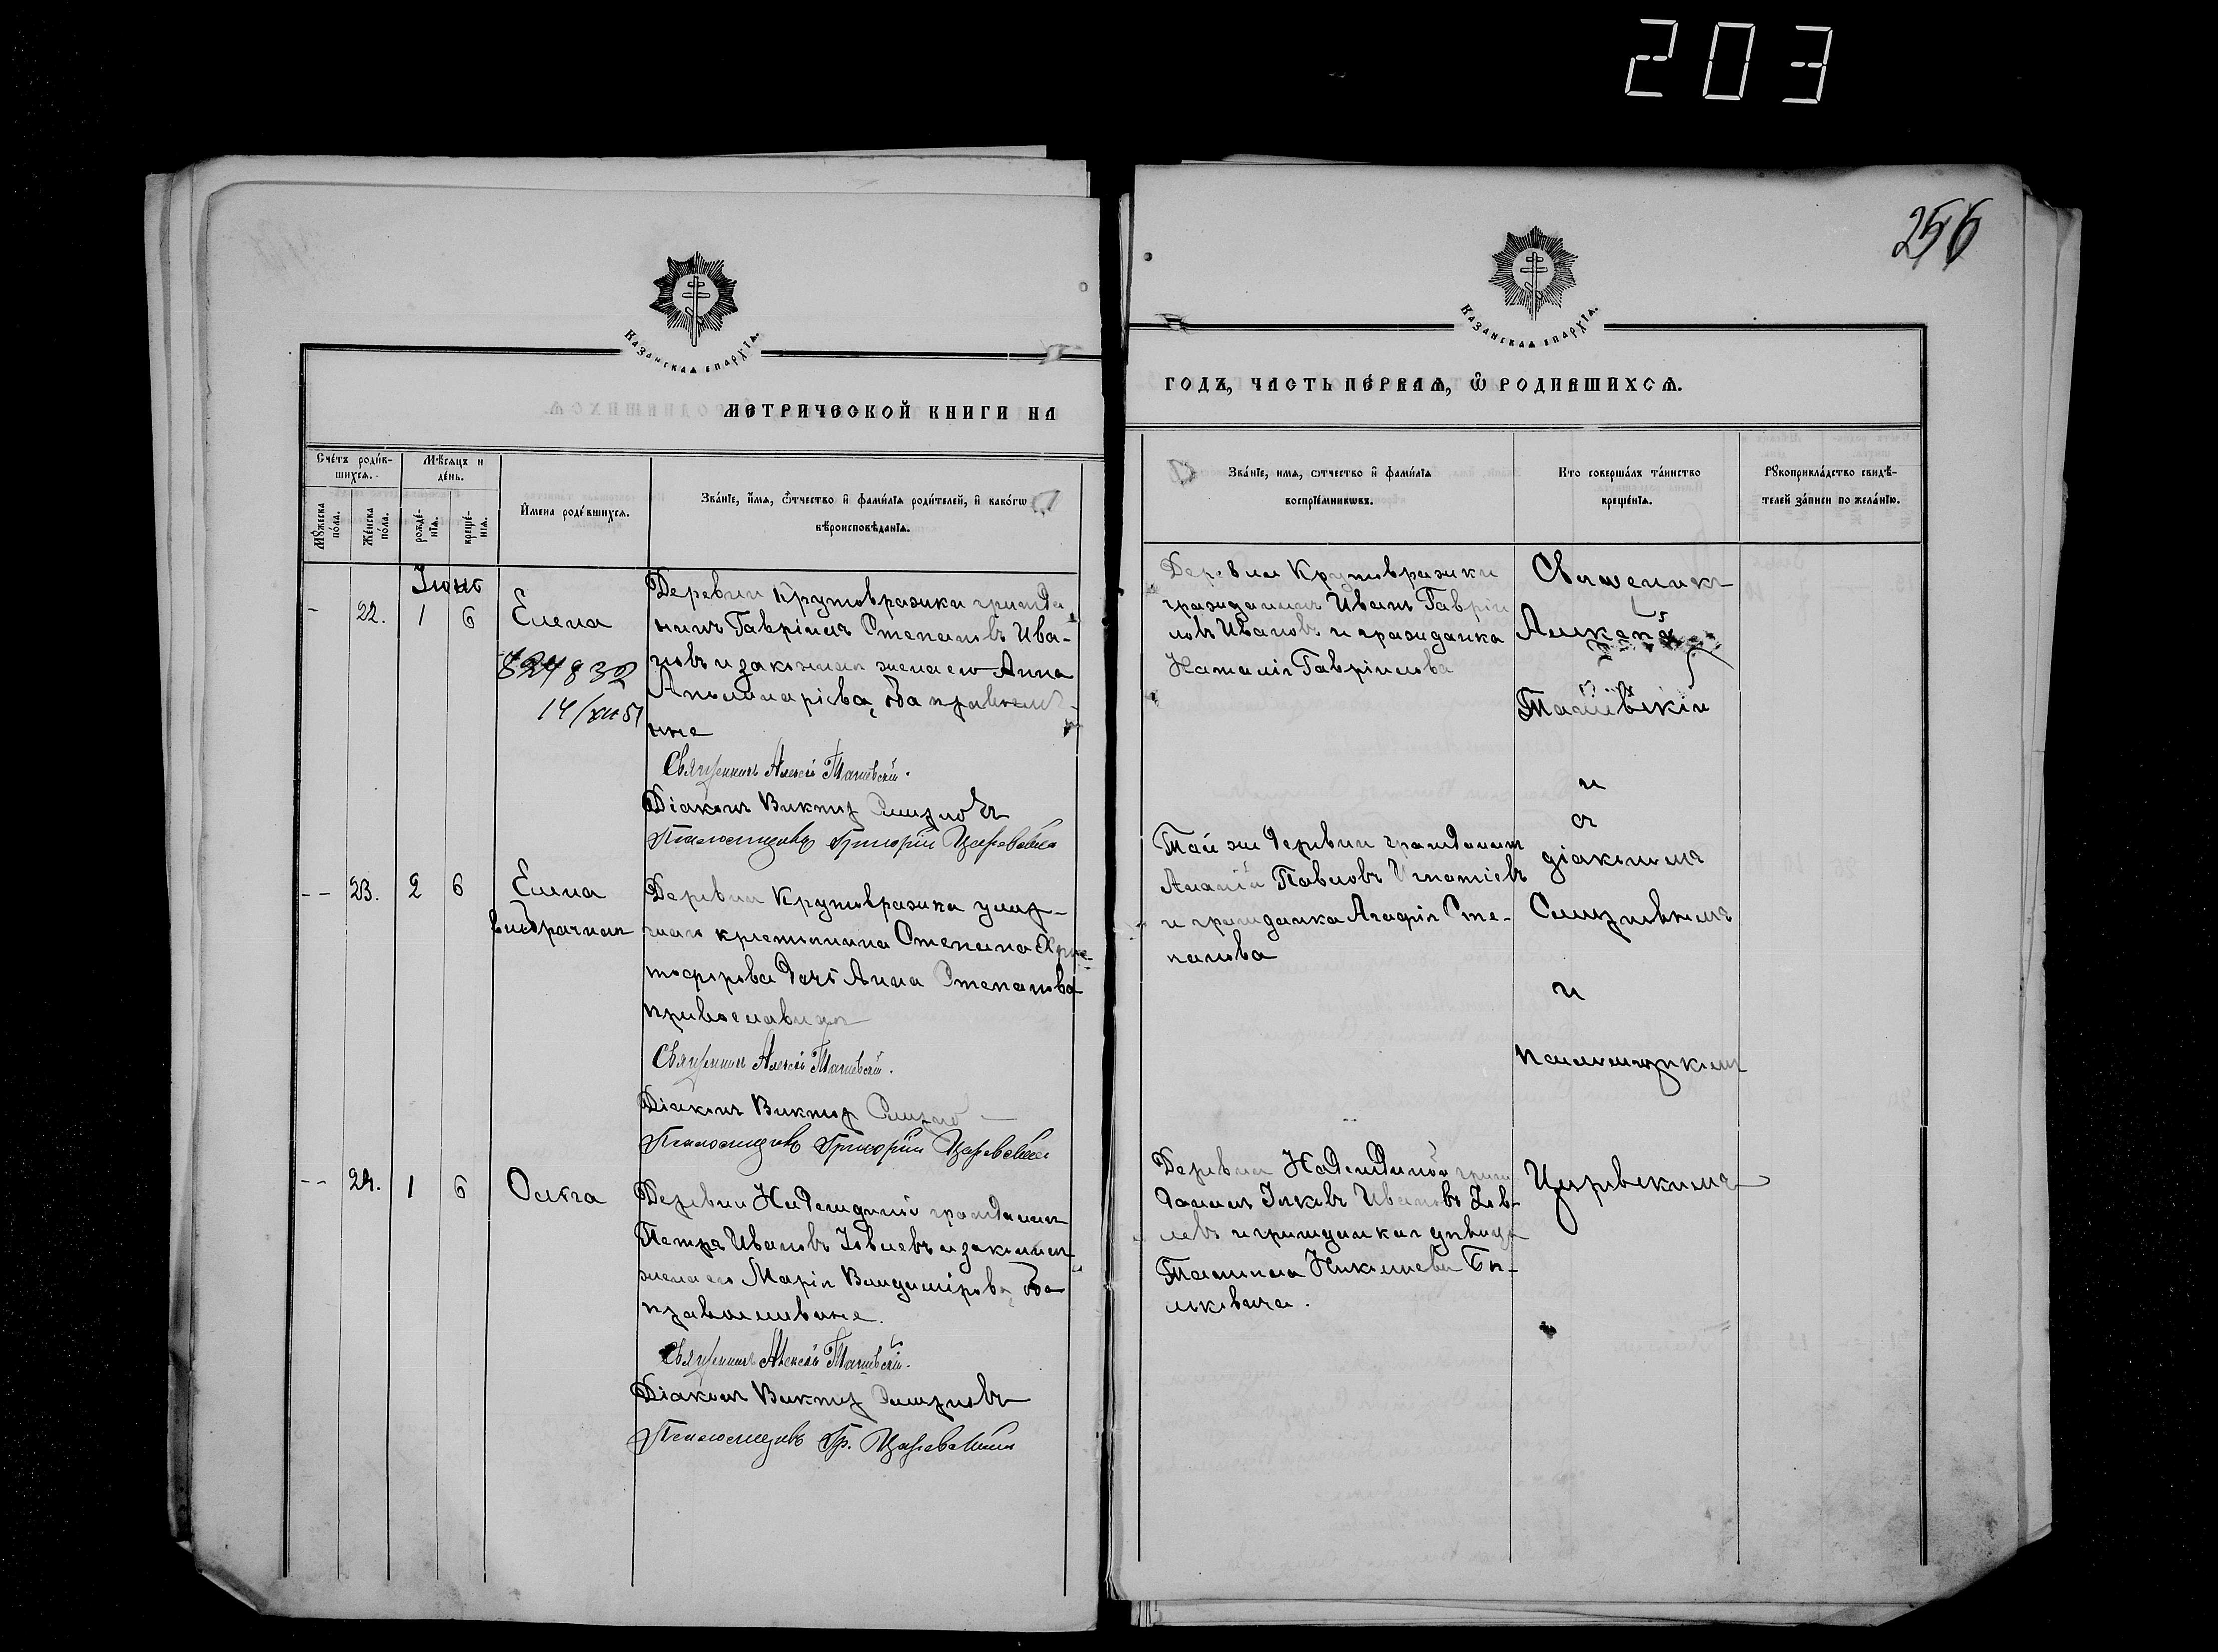 203
256
Казанская епархїѧ.
Казанская епархїѧ.
МЕТРИЧЕСКОЙ КНИГИ НА
ГОДЪ, ЧАСТЬ ПЕРВАЯ, Ѡ РОДИВШИХСЯ.
Счéтъ роди́в-
шихся.
Мѣсяцъ и
де́нь.
Мꙋжеска по́ла.
Же́нска по́ла.
рожде́-
нїя.
креще́-
нїя.
И҆мена роди́вшихся.
Зва́нїе, и҆́мя, ѻ҆́тчество и҆ фами́лїя роди́телей, и҆ како́гѡ
вѣроисповѣ́данїя.
Зва́нїе, имя, ѻтчество и҆ фами́лїя
воспрїе́мникѡвъ.
Кто соверша́лъ та́инство
креще́нїя.
Рꙋкоприкла́дство свидѣ́-
телей за́писи по жела́нїю.
Іюнь
22. 1 6 Елена
824832
14/XII 51
Деревни Крутовражки гражда
нинъ Гавріилъ Степановъ Ива-
новъ и законная жена его Анна
Аполинаріева, оба православ-
ные
Священникъ Алексѣй Талiевскiй.
Діаконъ Викторъ Смирновъ
Псаломщикъ Григорій Царевскій
Деревни Крутовражки
гражданинъ Иванъ Гаврiи
ловъ Ивановъ и гражданка
Наталія Гавріилова
Священникъ
и
съ
діакономъ
Смирновымъ
и
псаломщикомъ
23. 2 6 Елена
внѣбрачная
Деревни Крутовражки умер-
шаго крестьянина Степана Хрис-
тофорова дочь Анна Степанова
православная
Священникъ Алексѣй Талiевскiй.
Діаконъ Викторъ
Псаломщикъ Григорій Царевскій
Той же деревни гражданинъ
Ананій Павловъ Игнатіевъ
и гражданка Агафія Сте-
панова
24. 1 6 Ольга
Деревни Надеждиной гражданинъ
Петръ Ивановъ Іовлевъ и законная
жена его Марія Владимірова, оба
православные.
Священникъ Алексѣй Талiевскiй.
Діаконъ Викторъ Смирновъ
Псаломщикъ Гр. Царевскій
Деревни Надеждиной граж
данинъ Іаковъ Ивановъ Іов-
левъ и гражданская дѣвица
Татьяна
Царевскимъ